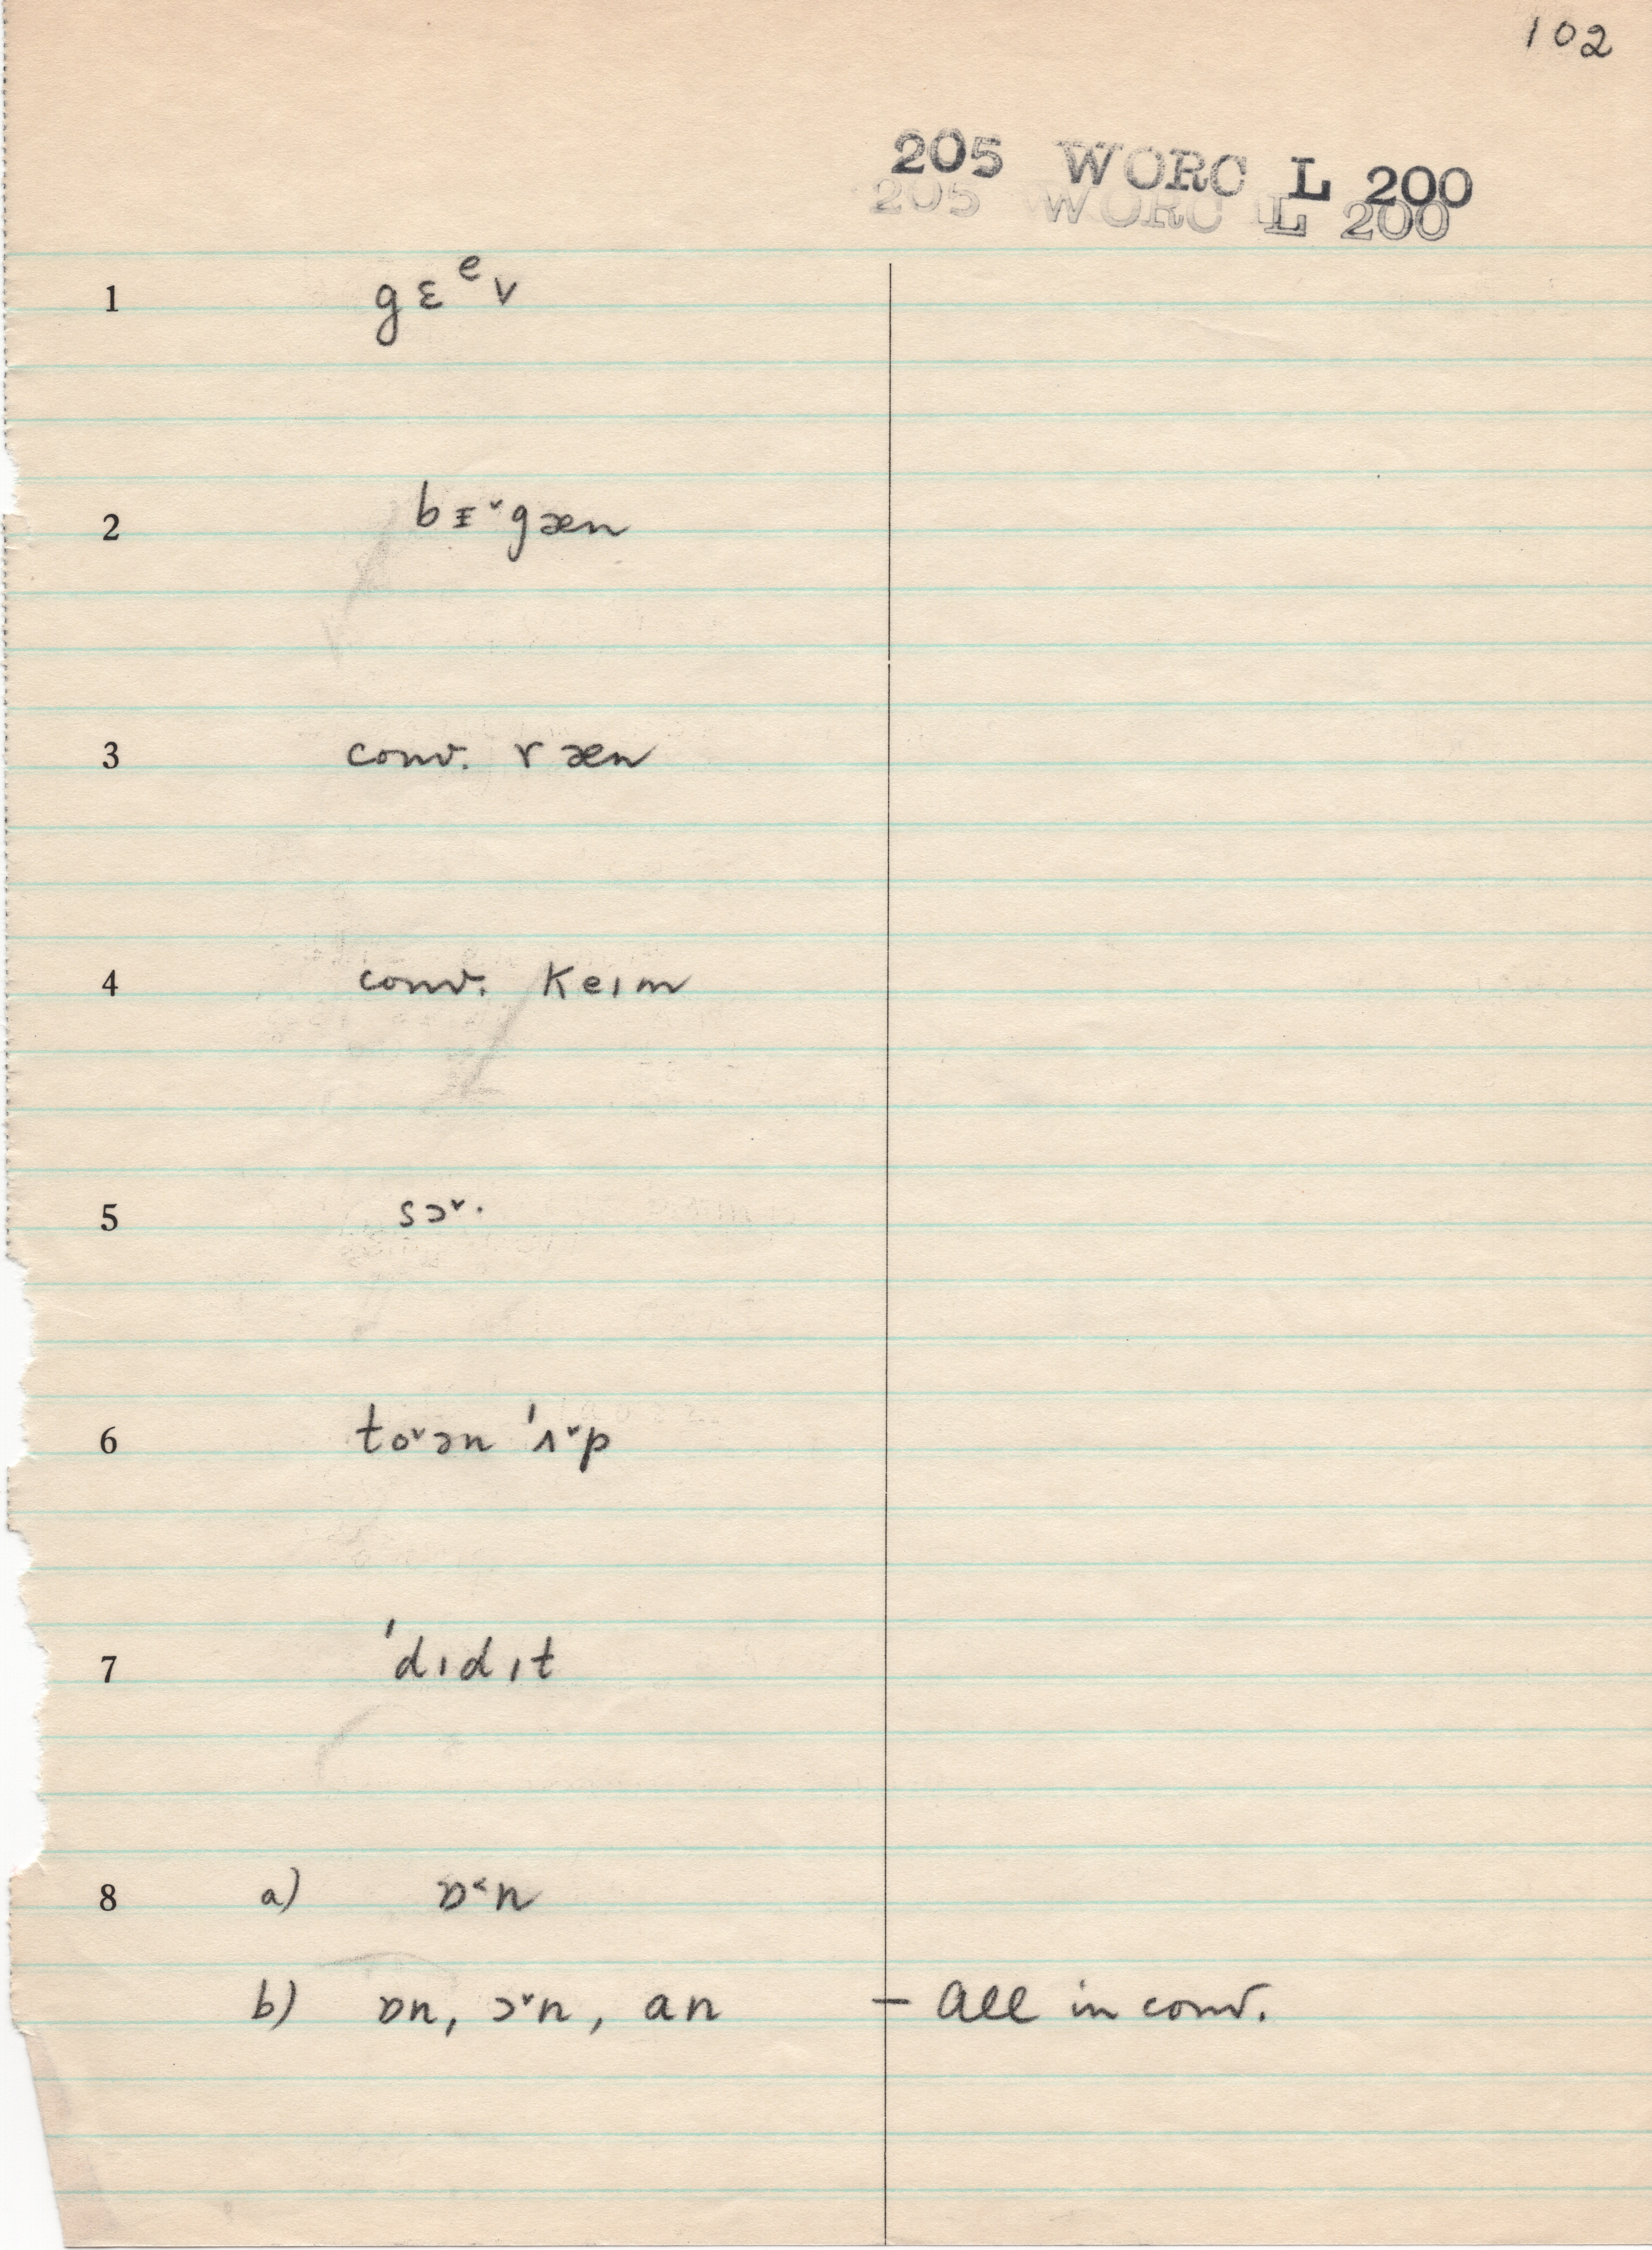 102
205 WORC L 200
205 WORC L 200
1 gɛᵉv
2 bɪ̵˅gæn
3 conv. ræn
4 conv. keɪm
5 sɔ˅·
6 to˅ɔn 'ʌ˅p
7 'dɪdɪt
8 a) ɒ˂n
b) ɒn, ɔ˅n, an – All in conv.